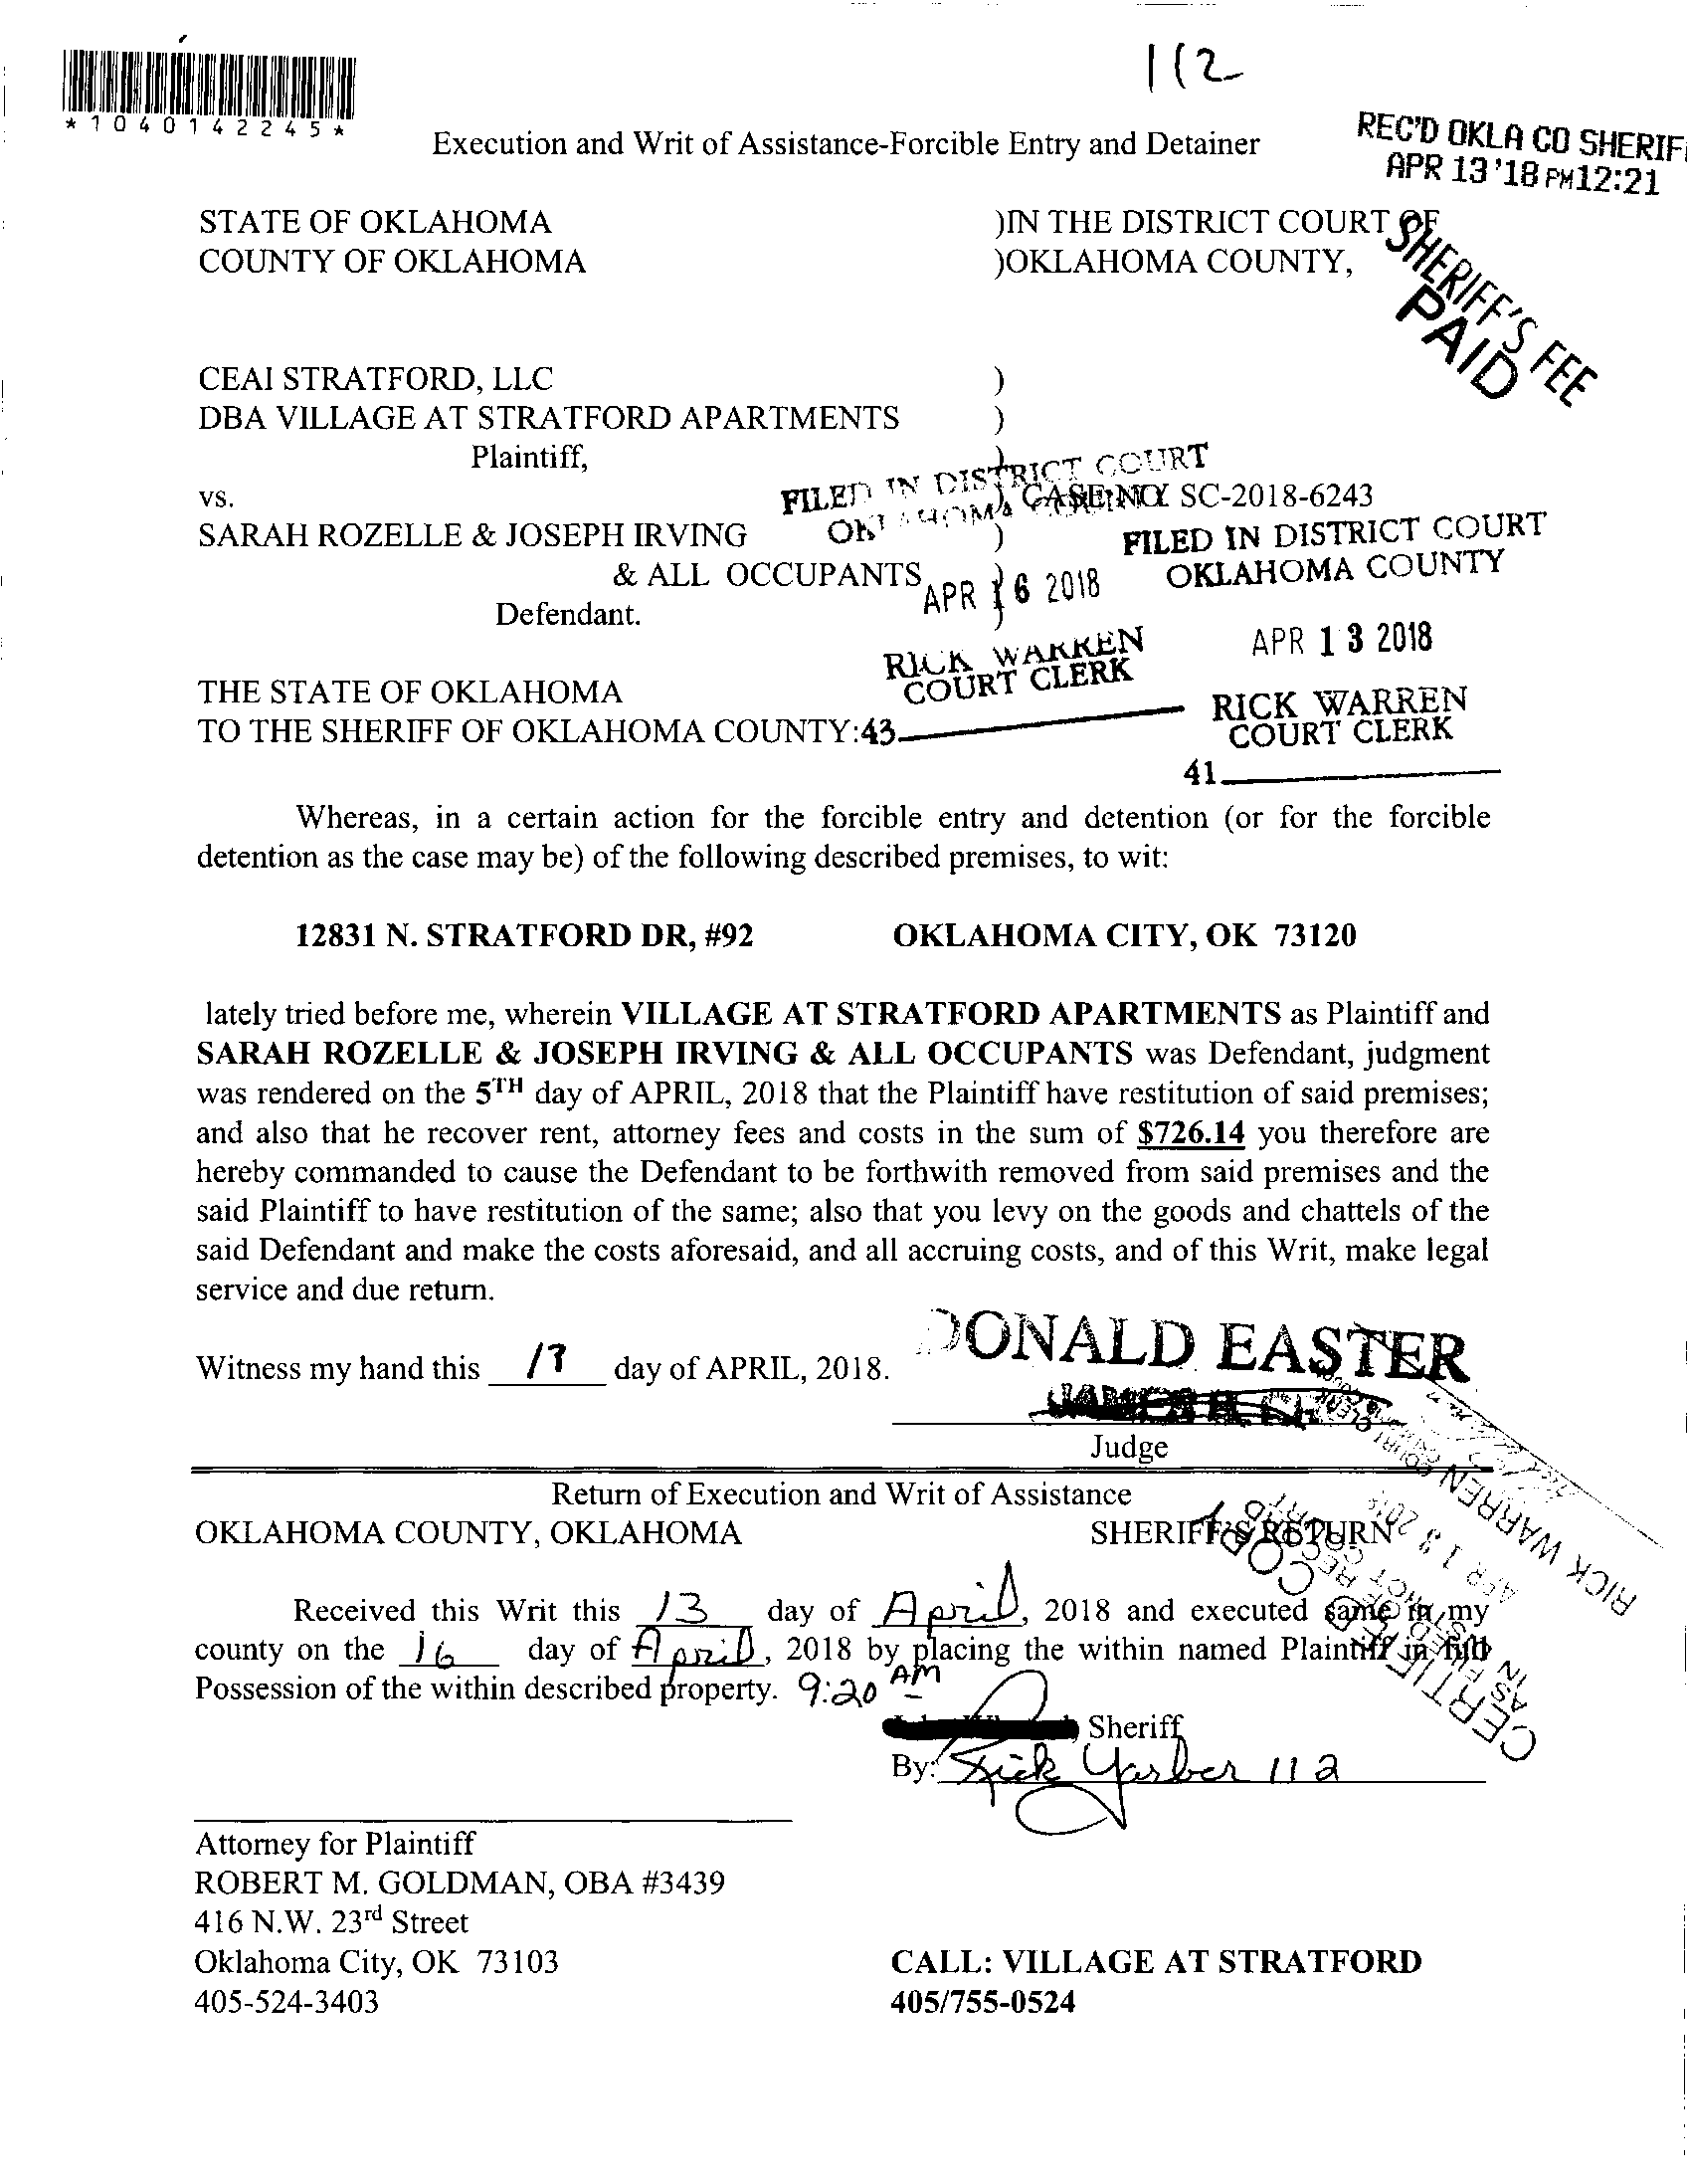 112
*1040142245*
REC'D OKLA CO SHERIF
APR 13 '18 PM12:21
Execution and Writ of Assistance-Forcible Entry and Detainer
STATE OF OKLAHOMA )IN THE DISTRICT COURT OF
COUNTY OF OKLAHOMA )OKLAHOMA COUNTY,
SHERIFF'S FEE
PAID
CEAI STRATFORD, LLC )
DBA VILLAGE AT STRATFORD APARTMENTS )
Plaintiff, )
vs. ) CASE NO. SC-2018-6243
SARAH ROZELLE & JOSEPH IRVING )
& ALL OCCUPANTS, )
Defendant. )
FILED IN DISTRICT COURT
OKLAHOMA COUNTY
APR 16 2018
RICK WARREN
COURT CLERK
43
FILED IN DISTRICT COURT
OKLAHOMA COUNTY
APR 13 2018
RICK WARREN
COURT CLERK
41
THE STATE OF OKLAHOMA
TO THE SHERIFF OF OKLAHOMA COUNTY:
Whereas, in a certain action for the forcible entry and detention (or for the forcible
detention as the case may be) of the following described premises, to wit:
12831 N. STRATFORD DR, #92 OKLAHOMA CITY, OK 73120
lately tried before me, wherein VILLAGE AT STRATFORD APARTMENTS as Plaintiff and
SARAH ROZELLE & JOSEPH IRVING & ALL OCCUPANTS was Defendant, judgment
was rendered on the 5TH day of APRIL, 2018 that the Plaintiff have restitution of said premises;
and also that he recover rent, attorney fees and costs in the sum of $726.14 you therefore are
hereby commanded to cause the Defendant to be forthwith removed from said premises and the
said Plaintiff to have restitution of the same; also that you levy on the goods and chattels of the
said Defendant and make the costs aforesaid, and all accruing costs, and of this Writ, make legal
service and due return.
DONALD EASTER
Witness my hand this day of APRIL, 2018.
Judge
Return of Execution and Writ of Assistance
OKLAHOMA COUNTY, OKLAHOMA SHERIFF'S RETURN
CERTIFIED COPY
APR 13 2018
RICK WARREN
Received this Writ this 13 day of April, 2018 and executed same in my
county on the 16 day of April, 2018 by placing the within named Plaintiff in full
Possession of the within described property. 9:20 AM
, Sheriff
By: Rick Yarber 112
Attorney for Plaintiff
ROBERT M. GOLDMAN, OBA #3439
416 N.W. 23rd Street
Oklahoma City, OK 73103 CALL: VILLAGE AT STRATFORD
405-524-3403 405/755-0524